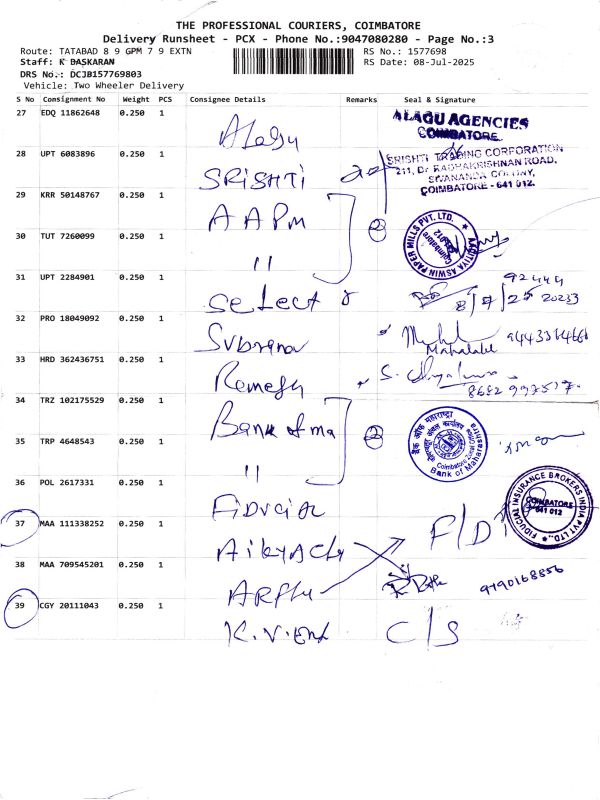 THE PROFESSIONAL COURIERS, COIMBATORE
Delivery Runsheet - PCX - Phone No.:9047080280 - Page No.:3
Route: TATABAD 8 9 GPM 7 9 EXTN
RS No.: 1577698
Staff: K BASKARAN
RS Date: 08-Jul-2025
DRS No.: DCJB157769803
Vehicle: Two Wheeler Delivery
S No Consignment No Weight PCS Consignee Details Remarks Seal & Signature
27 EDQ 11862648 0.250 1
Alagu
ALAGU AGENCIES
COIMBATORE.
28 UPT 6083896 0.250 1
SRISHTI
SRISHTI TRADING CORPORATION
211, Dr RADHAKRISHNAN ROAD,
SIVANANDA COLONY,
COIMBATORE - 641 012.
29 KRR 50148767 0.250 1
AAPM
2
AADITYA ASWIN PAPER MILLS PVT. LTD.
Coimbatore
30 TUT 7260099 0.250 1
"
31 UPT 2284901 0.250 1
Select
92444
8/7/25 20233
32 PRO 18049092 0.250 1
Mahalal
33 HRD 362436751 0.250 1
Ramesh
34 TRZ 102175529 0.250 1
Bank of ma
2
बैंक ऑफ महाराष्ट्र
Coimbatore Zonal Office
Bank of Maharashtra
35 TRP 4648543 0.250 1
"
36 POL 2617331 0.250 1
Fiducia
FIDUCIAL INSURANCE BROKERS INDIA PVT LTD.,
COIMBATORE
641 012
37 MAA 111338252 0.250 1
F/D
38 MAA 709545201 0.250 1
9790168856
39 CGY 20111043 0.250 1
C/S